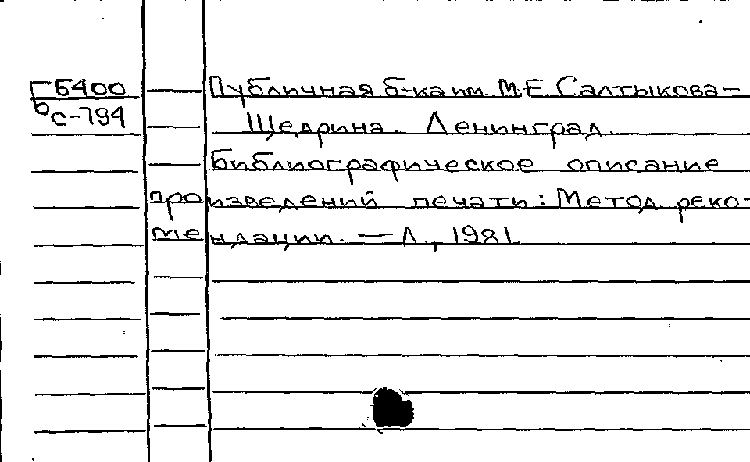 Г6400 Публичная б-ка им. М.Е. Салтыкова-
с-794 Щедрина. Ленинград.
Библиографическое описание
произведений печати: Метод. реко-
мендации. — Л., 1981